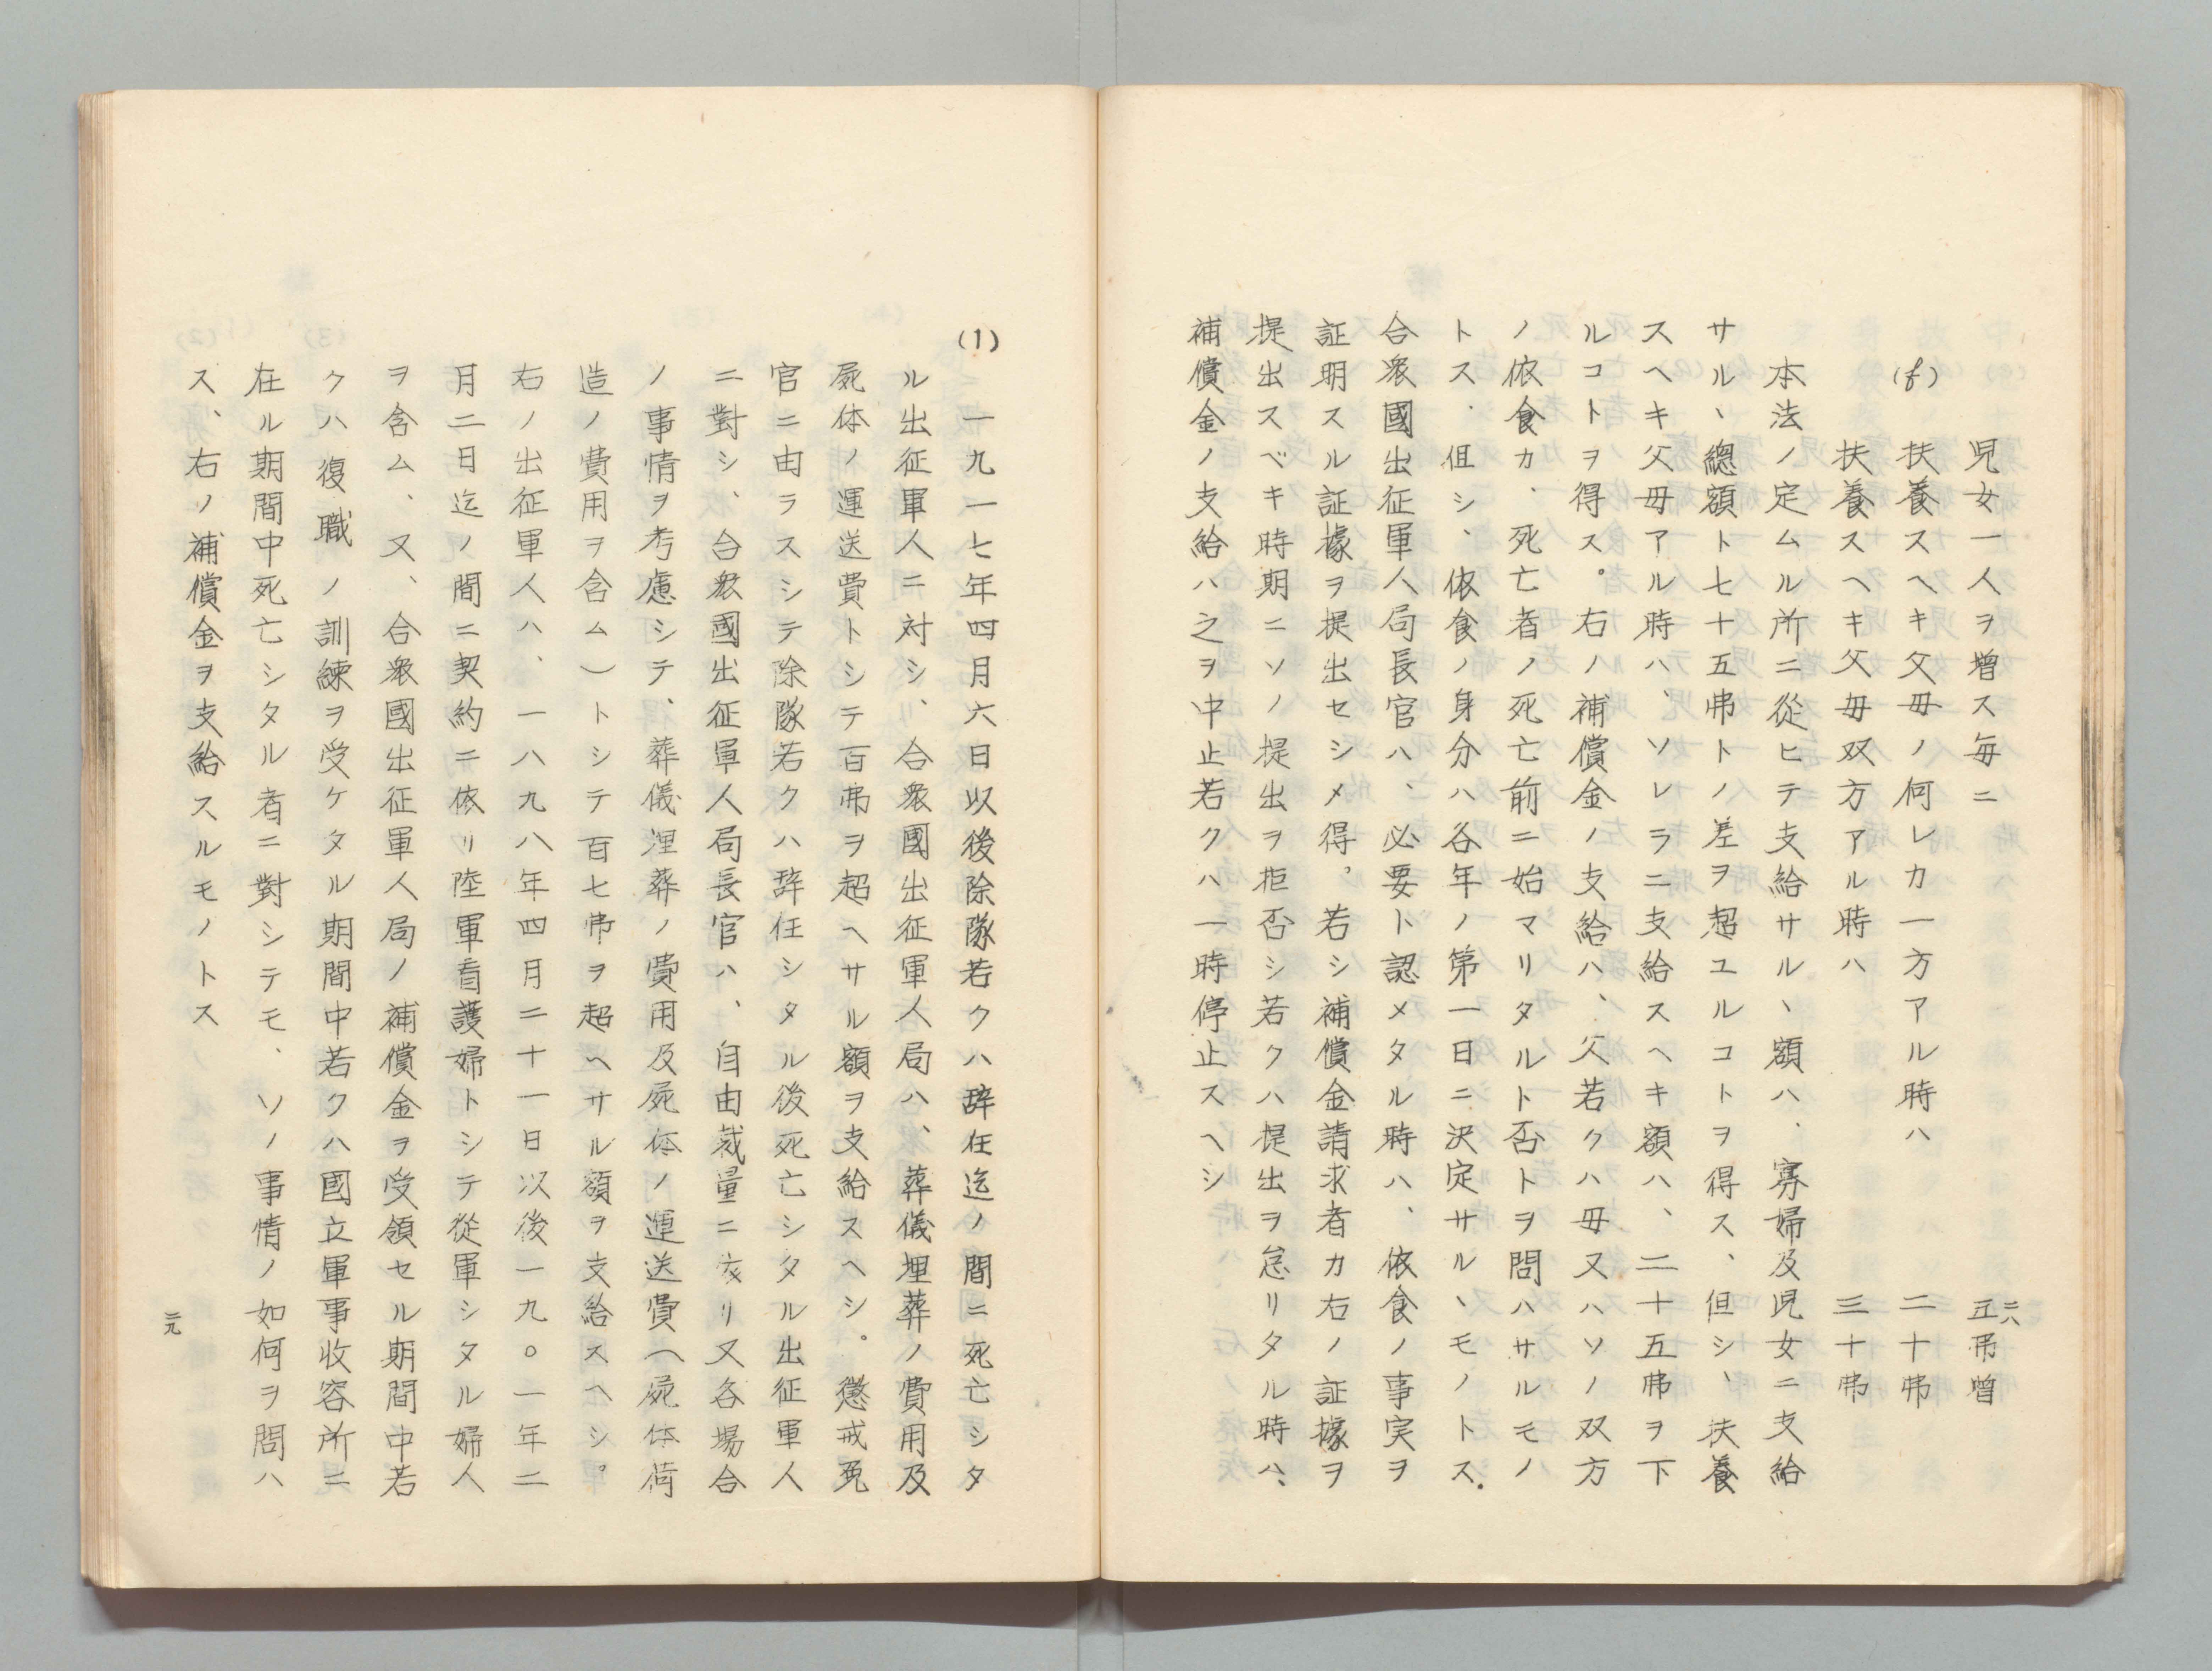 二八
児女一人ヲ増ス毎ニ 五弗増
(f) 扶養スヘキ父母ノ何レカ一方アル時ハ 二十弗
扶養スヘキ父母双方アル時ハ 三十弗
本法ノ定ムル所ニ從ヒテ支給サルヽ額ハ、寡婦及児女ニ支給
サルヽ總額ト七十五弗トノ差ヲ超ユルコトヲ得ス、但シ、扶養
スヘキ父母アル時ハ、ソレラニ支給スヘキ額ハ、二十五弗ヲ下
ルコトヲ得ス。右ノ補償金ノ支給ハ、父若クハ母又ハソノ双方
ノ依食カ、死亡者ノ死亡前ニ始マリタルト否トヲ問ハサルモノ
トス、但シ、依食ノ身分ハ各年ノ第一日ニ決定サルヽモノトス.
合衆國出征軍人局長官ハ、必要ト認メタル時ハ、依食ノ事実ヲ
証明スル証據ヲ提出セシメ得。若シ補償金請求者カ右ノ証據ヲ
提出スベキ時期ニソノ提出ヲ拒否シ若クハ提出ヲ怠リタル時ハ、
補償金ノ支給ハ之ヲ中止若クハ一時停止スヘシ
(1) 一九一七年四月六日以後除隊若クハ辞任迄ノ間ニ死亡シタ
ル出征軍人ニ対シ、合衆國出征軍人局ハ、葬儀埋葬ノ費用及
屍体ノ運送費トシテ百弗ヲ超ヘサル額ヲ支給スヘシ。懲戒免
官ニ由ラスシテ除隊若クハ辞任シタル後死亡シタル出征軍人
ニ對シ、合衆國出征軍人局長官ハ、自由裁量ニ依リ又各場合
ノ事情ヲ考慮シテ、葬儀埋葬ノ費用及屍体ノ運送費(屍体荷
造ノ費用ヲ含ム)トシテ百七弗ヲ超ヘサル額ヲ支給スヘシ。
右ノ出征軍人ハ、一八九八年四月二十一日以後一九〇一年二
月二日迄ノ間ニ契約ニ依リ陸軍看護婦トシテ從軍シタル婦人
ヲ含ム、又、合衆國出征軍人局ノ補償金ヲ受領セル期間中若
クハ復職ノ訓練ヲ受ケタル期間中若クハ國立軍事收容所ニ
在ル期間中死亡シタル者ニ對シテモ、ソノ事情ノ如何ヲ問ハ
ス、右ノ補償金ヲ支給スルモノトス
二九